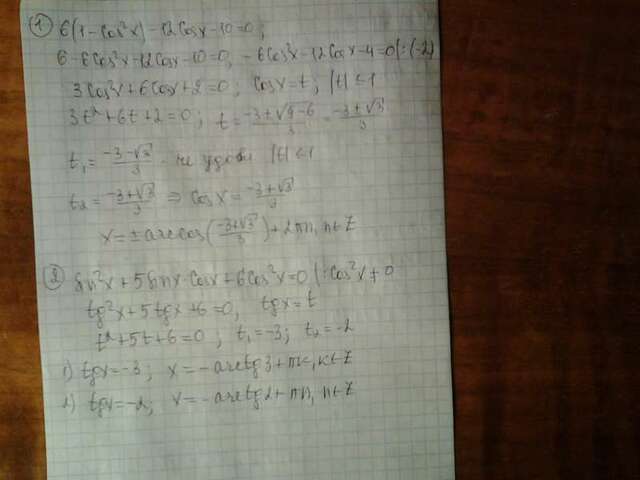 ① 6(1-cos²x)-12cosx-10=0;
6-6cos²x-12cosx-10=0; -6cos²x-12cosx-4=0|:(-2)
3cos²x+6cosx+2=0; cosx=t, |t|≤1
3t²+6t+2=0; t=(-3±√(9-6))/3=(-3±√3)/3
t₁=(-3-√3)/3 - не удовл |t|≤1
t₂=(-3+√3)/3 ⇒ cosx=(-3+√3)/3
x=±arccos((-3+√3)/3)+2πn, n∈Z
② sin²x+5sinx·cosx+6cos²x=0 |:cos²x≠0
tg²x+5tgx+6=0, tgx=t
t²+5t+6=0; t₁=-3; t₂=-2
1) tgx=-3; x=-arctg3+πk, k∈Z
2) tgx=-2; x=-arctg2+πn, n∈Z